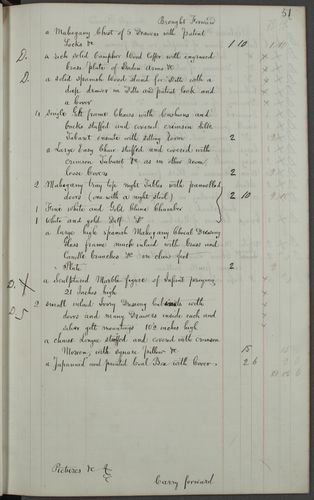 51
Brought Forward
a Mahogany Chest of 5 Drawers with Patent
Locks &c 1 10
D. a rich solid Camphor Wood Coffer with engraved
Brass plates of Indian arms &c
D. a solid Spanish Wood Stand for Ditto with a
deep drawer in Ditto and patent lock and
a cover
4 Single Gilt frame Chairs with Cushions and
backs stuffed and covered crimson silk
Tabaret ensuite with Sitting Room 2
a Large Easy Chair stuffed and covered with
crimson Tabaret &c as in other room
loose Covers 2
2 Mahogany tray top night Tables with panelled
doors (one with a night stool) 2 10
1 Four white and Gold China Chamber
1 White and gold Do
a large high Spanish Mahogany Cheval Dressing
Glass frame much inlaid with Brass and
Candle branches &c on claw feet
Plate 2
D. X a Sculptured Marble figure of Infant praying
21 Inches high
D. 2 small inlaid Ivory Dressing Cabinets with
doors and many Drawers inside each and
silver gilt mountings 10½ inches high
a chaise longue stuffed and covered with crimson
Moreen, with square pillow &c 15
a Japanned and painted Coal Box with Cover 2 6
Pictures &c
Carry forward